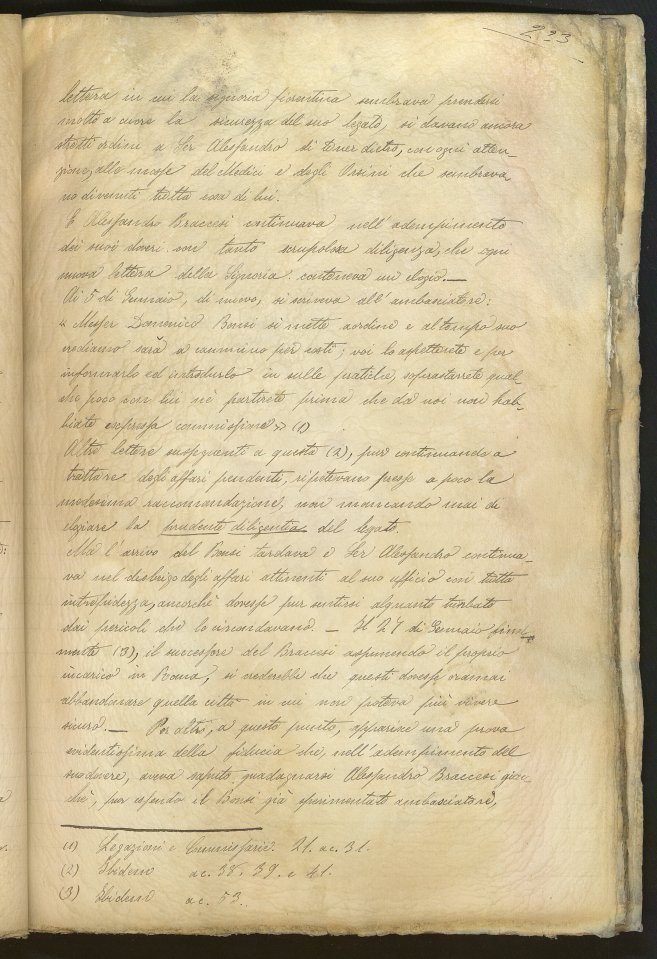 223
lettera in cui la signoria fiorentina sembrava prendersi
molto a cuore la sicurezza del suo legato, si davano ancora
stretti ordini a Ser Alessandro di tener dietro, con ogni atten-
zione, alle mosse del Medici e degli Orsini che sembrava
no divenuti tutta cosa di lui.
E Alessandro Braccesi continuava nell'adempimento
dei suoi doveri con tanto scrupolosa diligenza, che ogni
nuova lettera della Signoria conteneva un elogio. —
Ai 5 di Gennaio, di nuovo, si scriveva all'ambasciatore:
« Messer Domenico Bonsi si mette a ordine e al tempo suo
crediamo sarà a cammino per costì; voi lo aspetterete e per
informarlo ed introdurlo in sulle pratiche, soprastarete qual-
che poco con lui nè partirete prima che da noi non hab-
biate expressa commissione » (1)
Altre lettere susseguenti a questa (2), pur continuando a
trattare degli affari pendenti, ripetevano presso a poco la
medesima raccomandazione, non mancando mai di
elogiare la prudente diligentia del legato.
Ma l'arrivo del Bonsi tardava e Ser Alessandro continua-
va nel disbrigo degli affari attinenti al suo ufficio con tutta
intrepidezza, ancorchè dovesse pur sentirsi alquanto turbato
dai pericoli che lo circondavano. — Il 27 di Gennaio final
mente (3), il successore del Braccesi assumendo il proprio
incarico in Roma, si crederebbe che questi dovesse oramai
abbandonare quella città in cui non poteva più vivere
sicuro. — Per altro, a questo punto, apparisce una prova
evidentissima della fiducia che, nell'adempimento del
suo dovere, aveva saputo guadagnarsi Alessandro Braccesi giac-
chè, pur essendo il Bonsi già sperimentato ambasciatore,
(1) Legazioni e Commissarie. 21. ac. 31.
(2) Ibidem ac. 38. 39. e 41.
(3) Ibidem ac. 53.